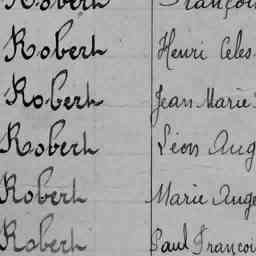 Robert Françoi
Robert Henri Celes
Robert Jean Marie
Robert Léon Aug
Robert Marie Ange
Robert Paul Françoi